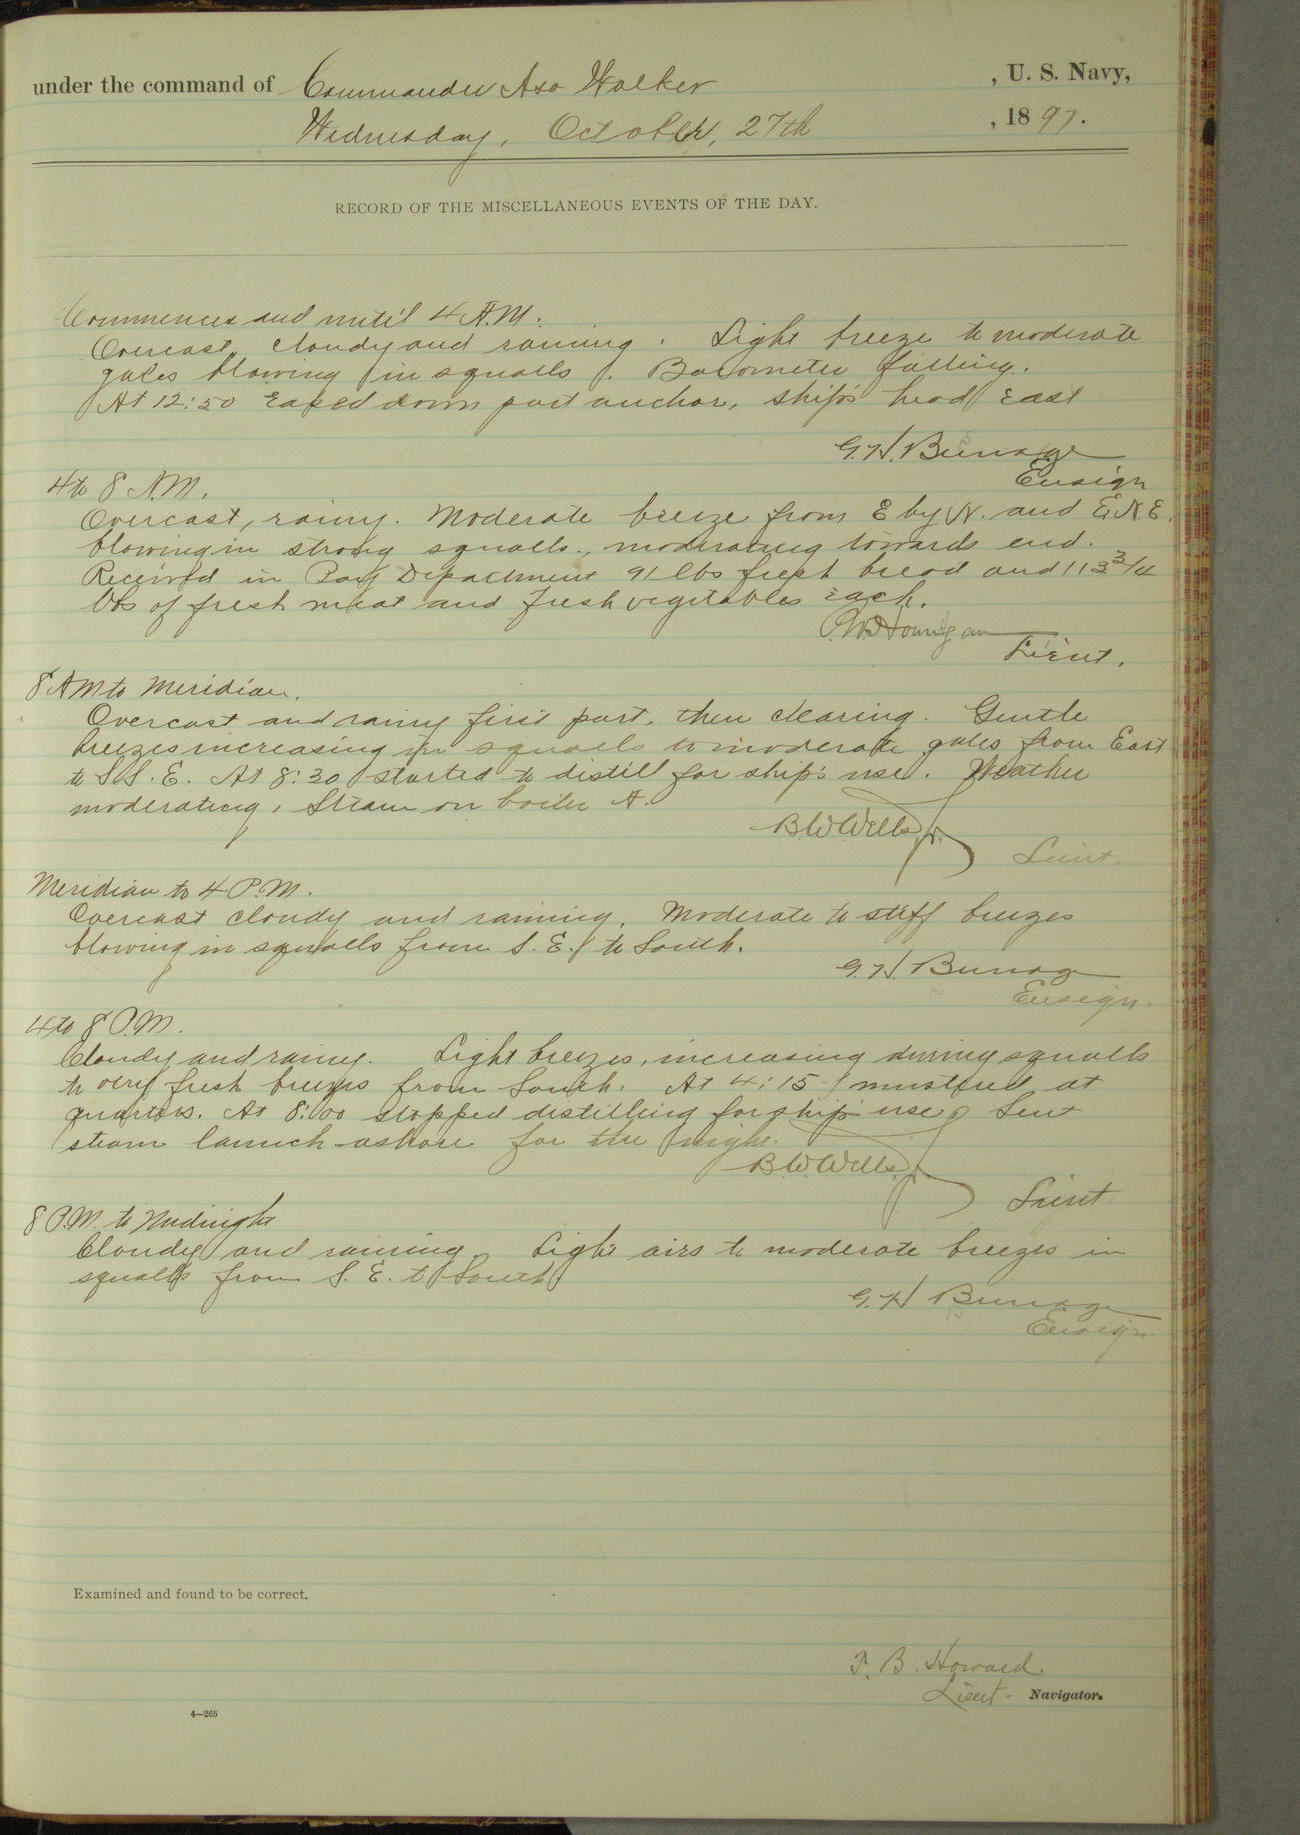 under the command of Commander Asa Walker , U. S. Navy,
Wednesday, October, 27th , 1897.
RECORD OF THE MISCELLANEOUS EVENTS OF THE DAY.
Commences and until 4 A.M.
Overcast, cloudy and raining. Light breeze to moderate
gales blowing in squalls. Barometer falling.
At 12:50 eased down port anchor, ship's head East
G. H. Burrage
Ensign
4 to 8 A.M.
Overcast, rainy. Moderate breeze from E by N. and E.N.E.
blowing in strong squalls, moderating towards end.
Received in Pay Department 91 lbs fresh bread and 113 3/4
lbs of fresh meat and fresh vegetables each.
Hourigan
Lieut.
8 AM to Meridian.
Overcast and rainy first part, then clearing. Gentle
breezes increasing in squalls to moderate gales from East
to S.S.E. At 8:30 started to distill for ship's use. Weather
moderating, Steam on boiler A.
B.W. Wells Jr.
Lieut.
Meridian to 4 P.M.
Overcast cloudy and raining. Moderate to stiff breezes
blowing in squalls from S.E. to South.
G. H. Burrage
Ensign.
4 to 8 P.M.
Cloudy and rainy. Light breezes, increasing during squalls
to very fresh breezes from South. At 4:15 mustered at
quarters. At 8:00 stopped distilling for ship's use. Sent
steam launch ashore for the night.
B.W. Wells Jr.
Lieut.
8 P.M. to Midnight
Cloudy and raining. Light airs to moderate breezes in
squalls from S.E. to South
G. H. Burrage
Ensign.
Examined and found to be correct.
T. B. Howard.
Lieut- Navigator.
4—265